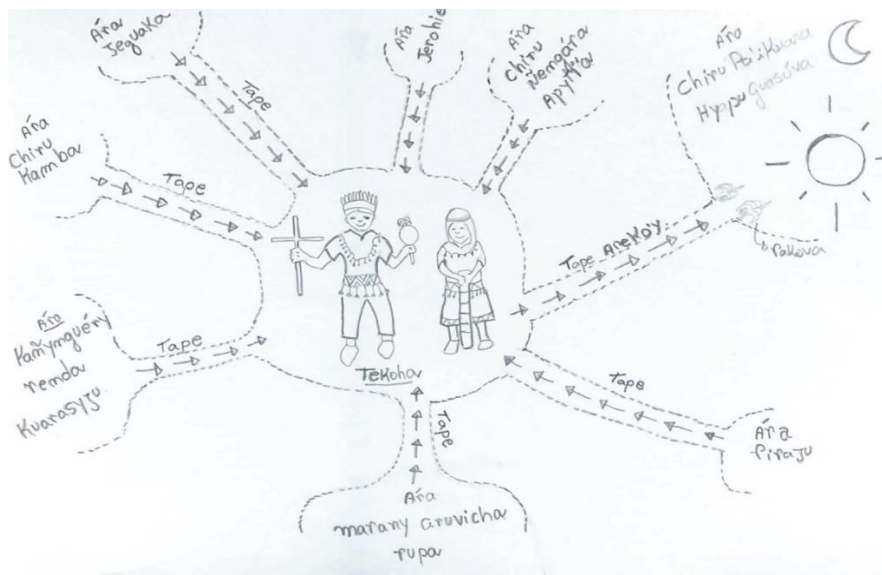 Ára
Jeguaka
Tape
Ára
Jerohie
Ára
Chiru
Ñemgára
Apyka
Ára
Hyapuguasúva
Ára
Chiru
Kamba
Tape
Tape
rakova
Ára
remda
Kuarasyju
Tape
Tekoha
Tape
Ára
Piraju
Tape
Ára
marany aruvicha
rupa